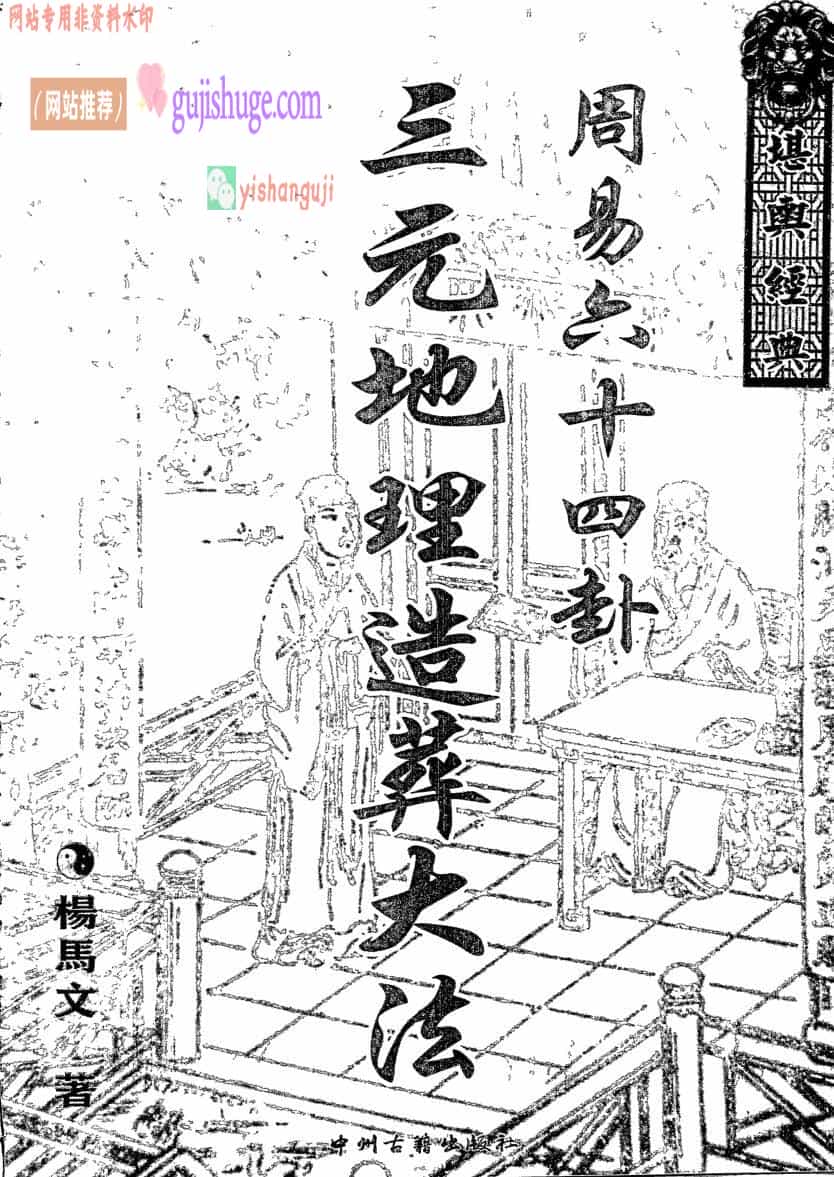 网站专用非资料水印
（网站推荐）
gujishuge.com
yishanguji
堪輿經典
周易六十四卦
三元地理造葬大法
楊馬文 著
中州古籍出版社